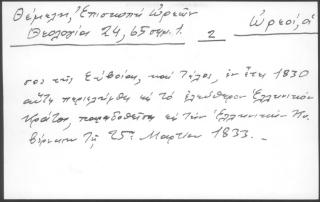 Θέμελη, Ἐπισκοπὴ Ὠρεῶν
Θεολογία 24, 65 σημ. 1.
2
Ὠρεοί, ὁ
σος τῆς Εὐβοίας, καὶ τέλος, ἐν ἔτει 1830
αὕτη περιελήφθη εἰς τὸ ἐλεύθερον Ἑλληνικὸν
Κράτος, παραδοθεῖσα εἰς τὴν Ἑλληνικὴν Κυ
βέρνησιν τῇ 25ῃ Μαρτίου 1833.